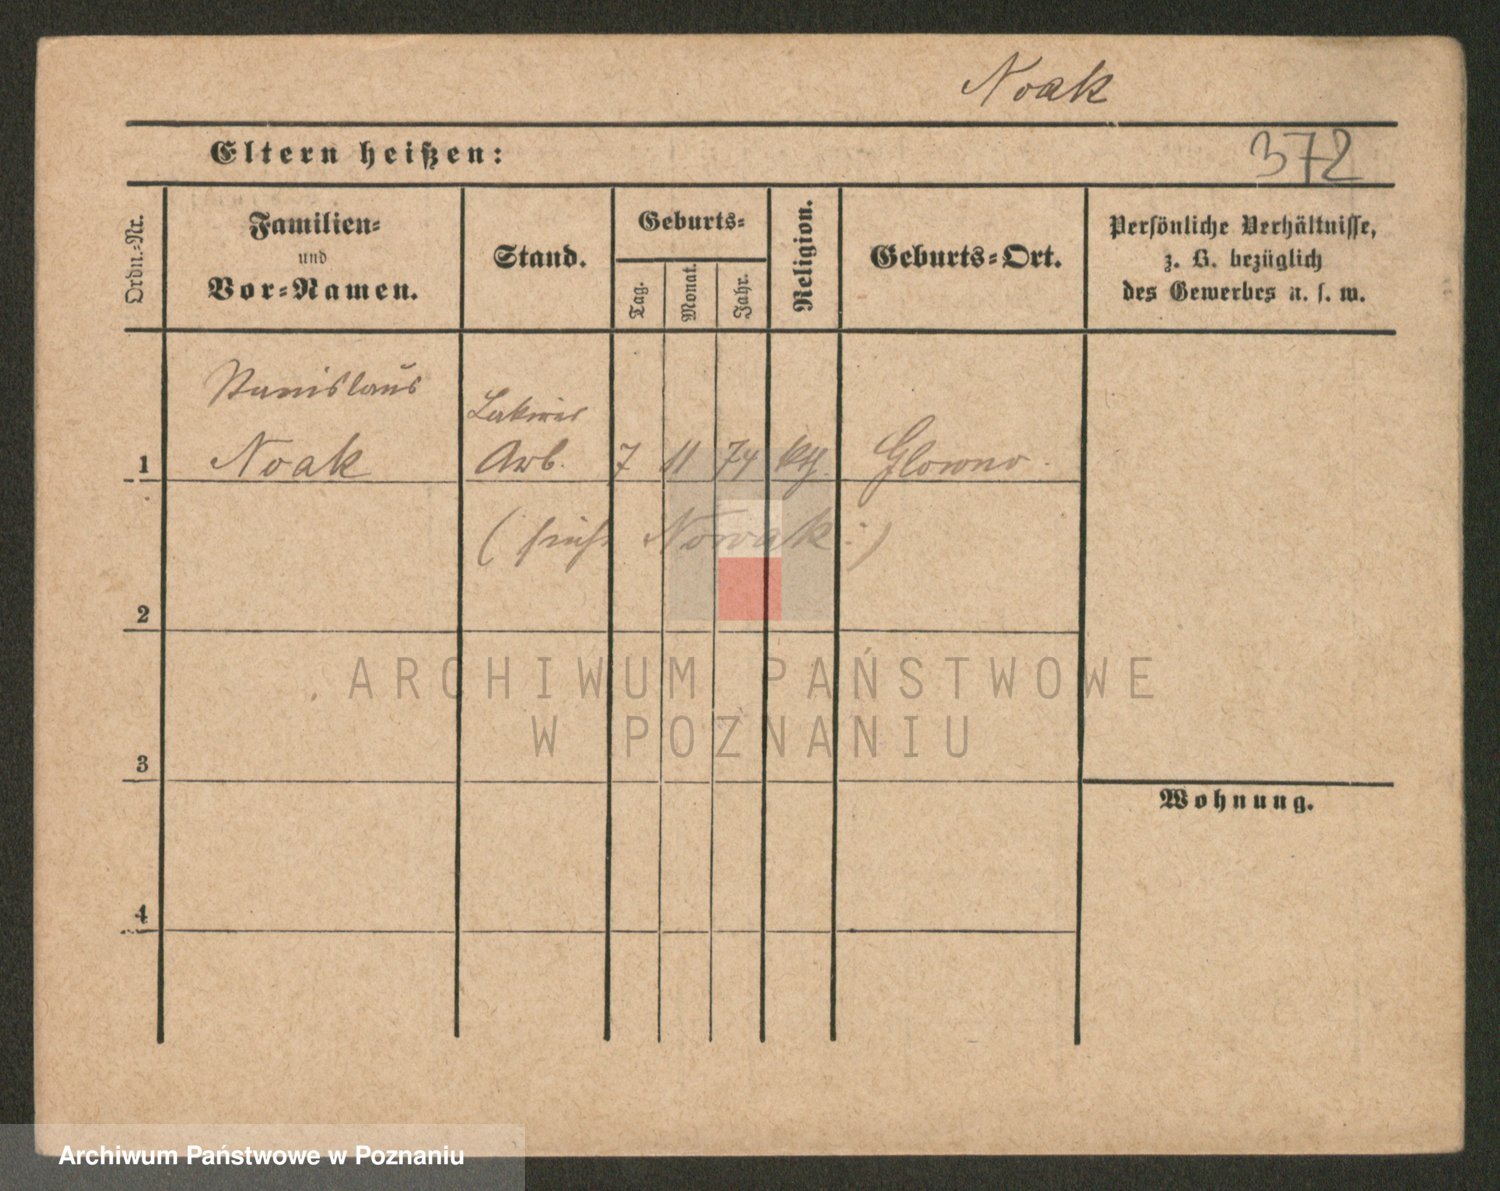 Noak
Eltern heißen:
372
Ordn.-Nr.
Familien-
und
Vor-Namen.
Stand.
Geburts-
Tag.
Monat.
Jahr.
Religion.
Geburts-Ort.
Persönliche Verhältnisse,
z. B. bezüglich
des Gewerbes u. s. w.
Stanislaus
1 Noak Arb. 7 11 74 kth. Glowno
( sieh. Nowak. )
2
3
Wohnung.
4
ARCHIWUM PAŃSTWOWE
W POZNANIU
Archiwum Państwowe w Poznaniu